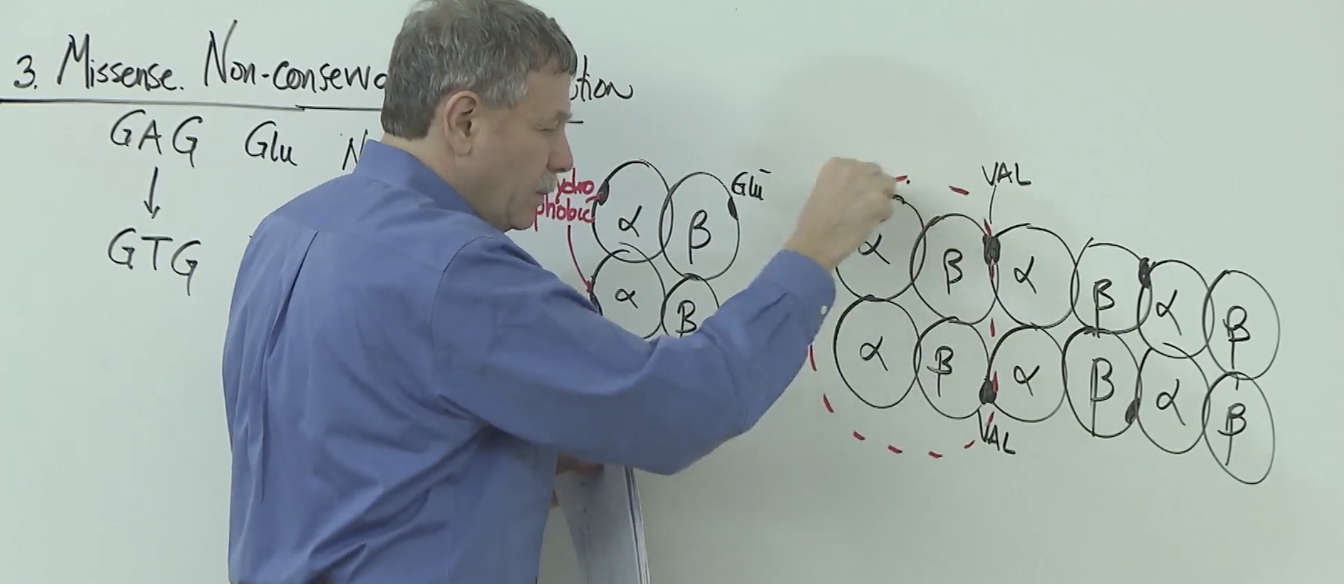 3. Missense. Non-conserva tion
GAG Glu N
GTG
ydro
phobic
α β Glu⁻
α β
VAL
α β α β α β
α β α β α β
VAL